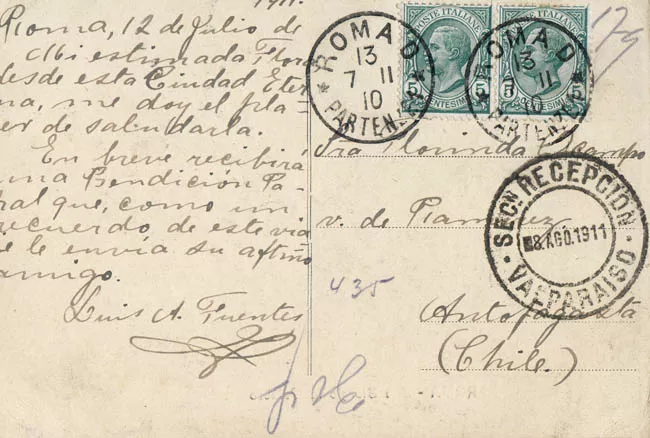 1911.
Roma, 12 de Julio de
Mi estimada Flor
desde esta Ciudad Eter
na, me doy el pla-
er de saludarla.
En breve recibirá
una Bendición Pa
ral que, como un
recuerdo de este via
e le envía su aftmo
amigo.
Luis A. Fuentes
POSTE ITALIANE
5
CENTESIMI
POSTE ITALIANE
5
ROMA
13
7 11
10
PARTENZA
ROMA
13
7 11
10
PARTENZA
Sra Florinda Ocampo
v. de Ramirez
435
Antofagasta
(Chile.)
SECN RECEPCION
8.AGO.1911
VALPARAISO